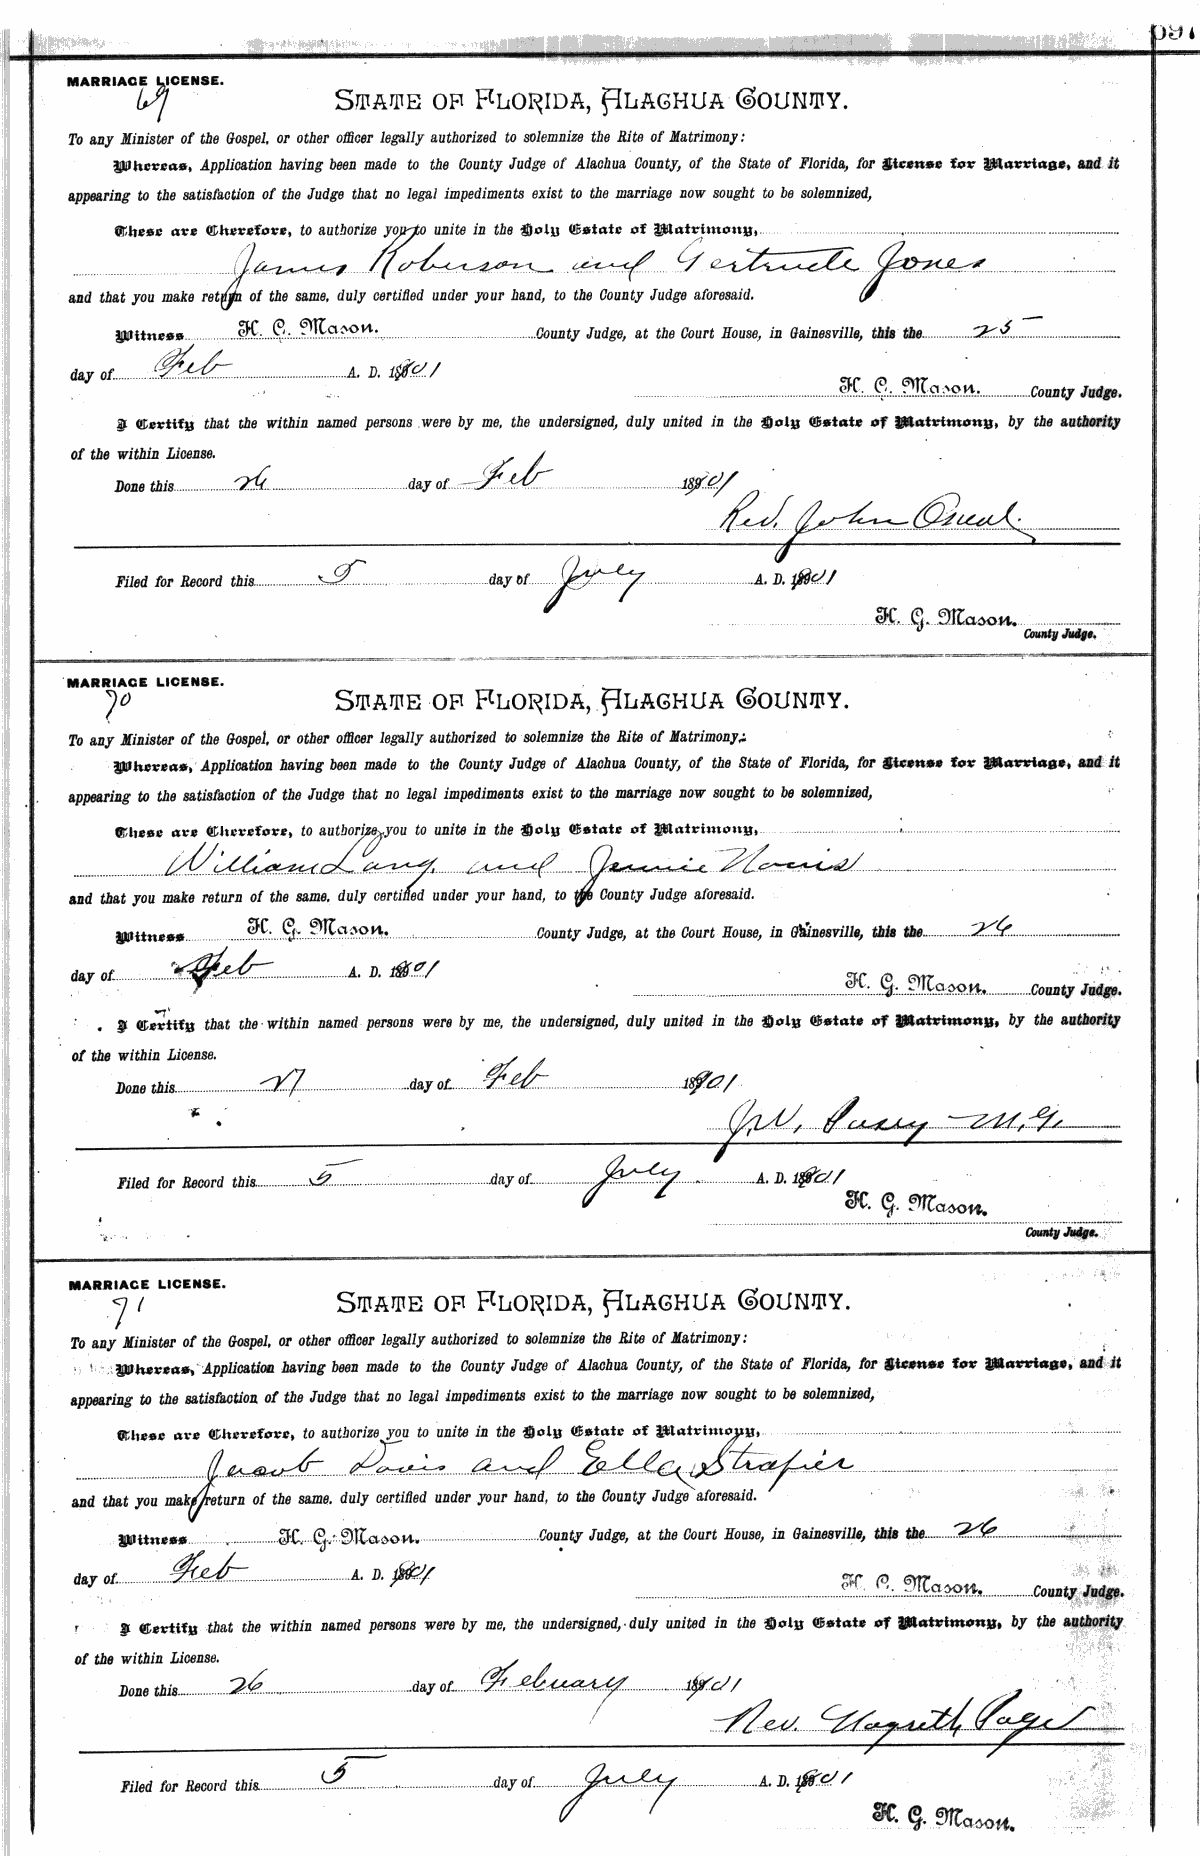 697
MARRIAGE LICENSE.
69
STATE OF FLORIDA, ALACHUA COUNTY.
To any Minister of the Gospel, or other officer legally authorized to solemnize the Rite of Matrimony:
Whereas, Application having been made to the County Judge of Alachua County, of the State of Florida, for License for Marriage, and it
appearing to the satisfaction of the Judge that no legal impediments exist to the marriage now sought to be solemnized,
These are Therefore, to authorize you to unite in the Holy Estate of Matrimony,
James Roberson and Gertrude Jones
and that you make return of the same, duly certified under your hand, to the County Judge aforesaid.
Witness H. G. Mason. County Judge, at the Court House, in Gainesville, this the 25
day of Feb A. D. 1901
H. G. Mason. County Judge.
I Certify that the within named persons were by me, the undersigned, duly united in the Holy Estate of Matrimony, by the authority
of the within License.
Done this 26 day of Feb 1901
Rev. John Oneal.
Filed for Record this 5 day of July A. D. 1901
H. G. Mason.
County Judge.
MARRIAGE LICENSE.
70
STATE OF FLORIDA, ALACHUA COUNTY.
To any Minister of the Gospel, or other officer legally authorized to solemnize the Rite of Matrimony:
Whereas, Application having been made to the County Judge of Alachua County, of the State of Florida, for License for Marriage, and it
appearing to the satisfaction of the Judge that no legal impediments exist to the marriage now sought to be solemnized,
These are Therefore, to authorize you to unite in the Holy Estate of Matrimony,
William Lang. and Jennie Norris
and that you make return of the same, duly certified under your hand, to the County Judge aforesaid.
Witness H. G. Mason. County Judge, at the Court House, in Gainesville, this the 26
day of Feb A. D. 1901
H. G. Mason. County Judge.
I Certify that the within named persons were by me, the undersigned, duly united in the Holy Estate of Matrimony, by the authority
of the within License.
Done this 27 day of Feb 1901
J. W. M.G.
Filed for Record this 5 day of July A. D. 1901
H. G. Mason.
County Judge.
MARRIAGE LICENSE.
71
STATE OF FLORIDA, ALACHUA COUNTY.
To any Minister of the Gospel, or other officer legally authorized to solemnize the Rite of Matrimony:
Whereas, Application having been made to the County Judge of Alachua County, of the State of Florida, for License for Marriage, and it
appearing to the satisfaction of the Judge that no legal impediments exist to the marriage now sought to be solemnized,
These are Therefore, to authorize you to unite in the Holy Estate of Matrimony,
Jacob Davis and Ella Strafier
and that you make return of the same, duly certified under your hand, to the County Judge aforesaid.
Witness H. G. Mason. County Judge, at the Court House, in Gainesville, this the 26
day of Feb A. D. 1901
H. G. Mason. County Judge.
I Certify that the within named persons were by me, the undersigned, duly united in the Holy Estate of Matrimony, by the authority
of the within License.
Done this 26 day of February 1901
Rev. Page
Filed for Record this 5 day of July A. D. 1901
H. G. Mason.